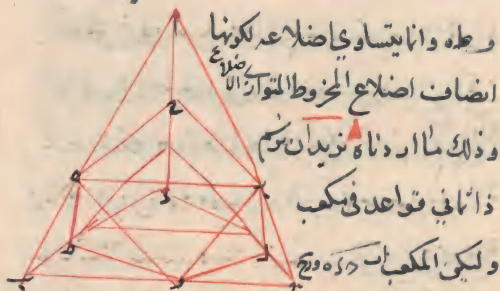 و طه وانما يتساوي اضلاعه لكونها
انصاف اضلاع المخروط المتوازي الاضلاع
وذلك ما اردناه نريد ان نرسم
ذا ثماني قواعد في مكعب
وليكن المكعب اب